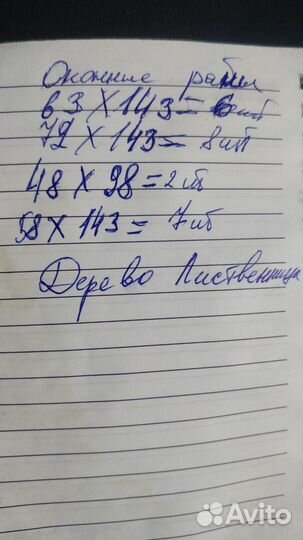 Оконние рамы
63 X 143 = 6 шт
72 X 143 = 8 шт
48 X 98 = 2 шт
58 X 143 = 7 шт
Дерево Лиственница
Avito